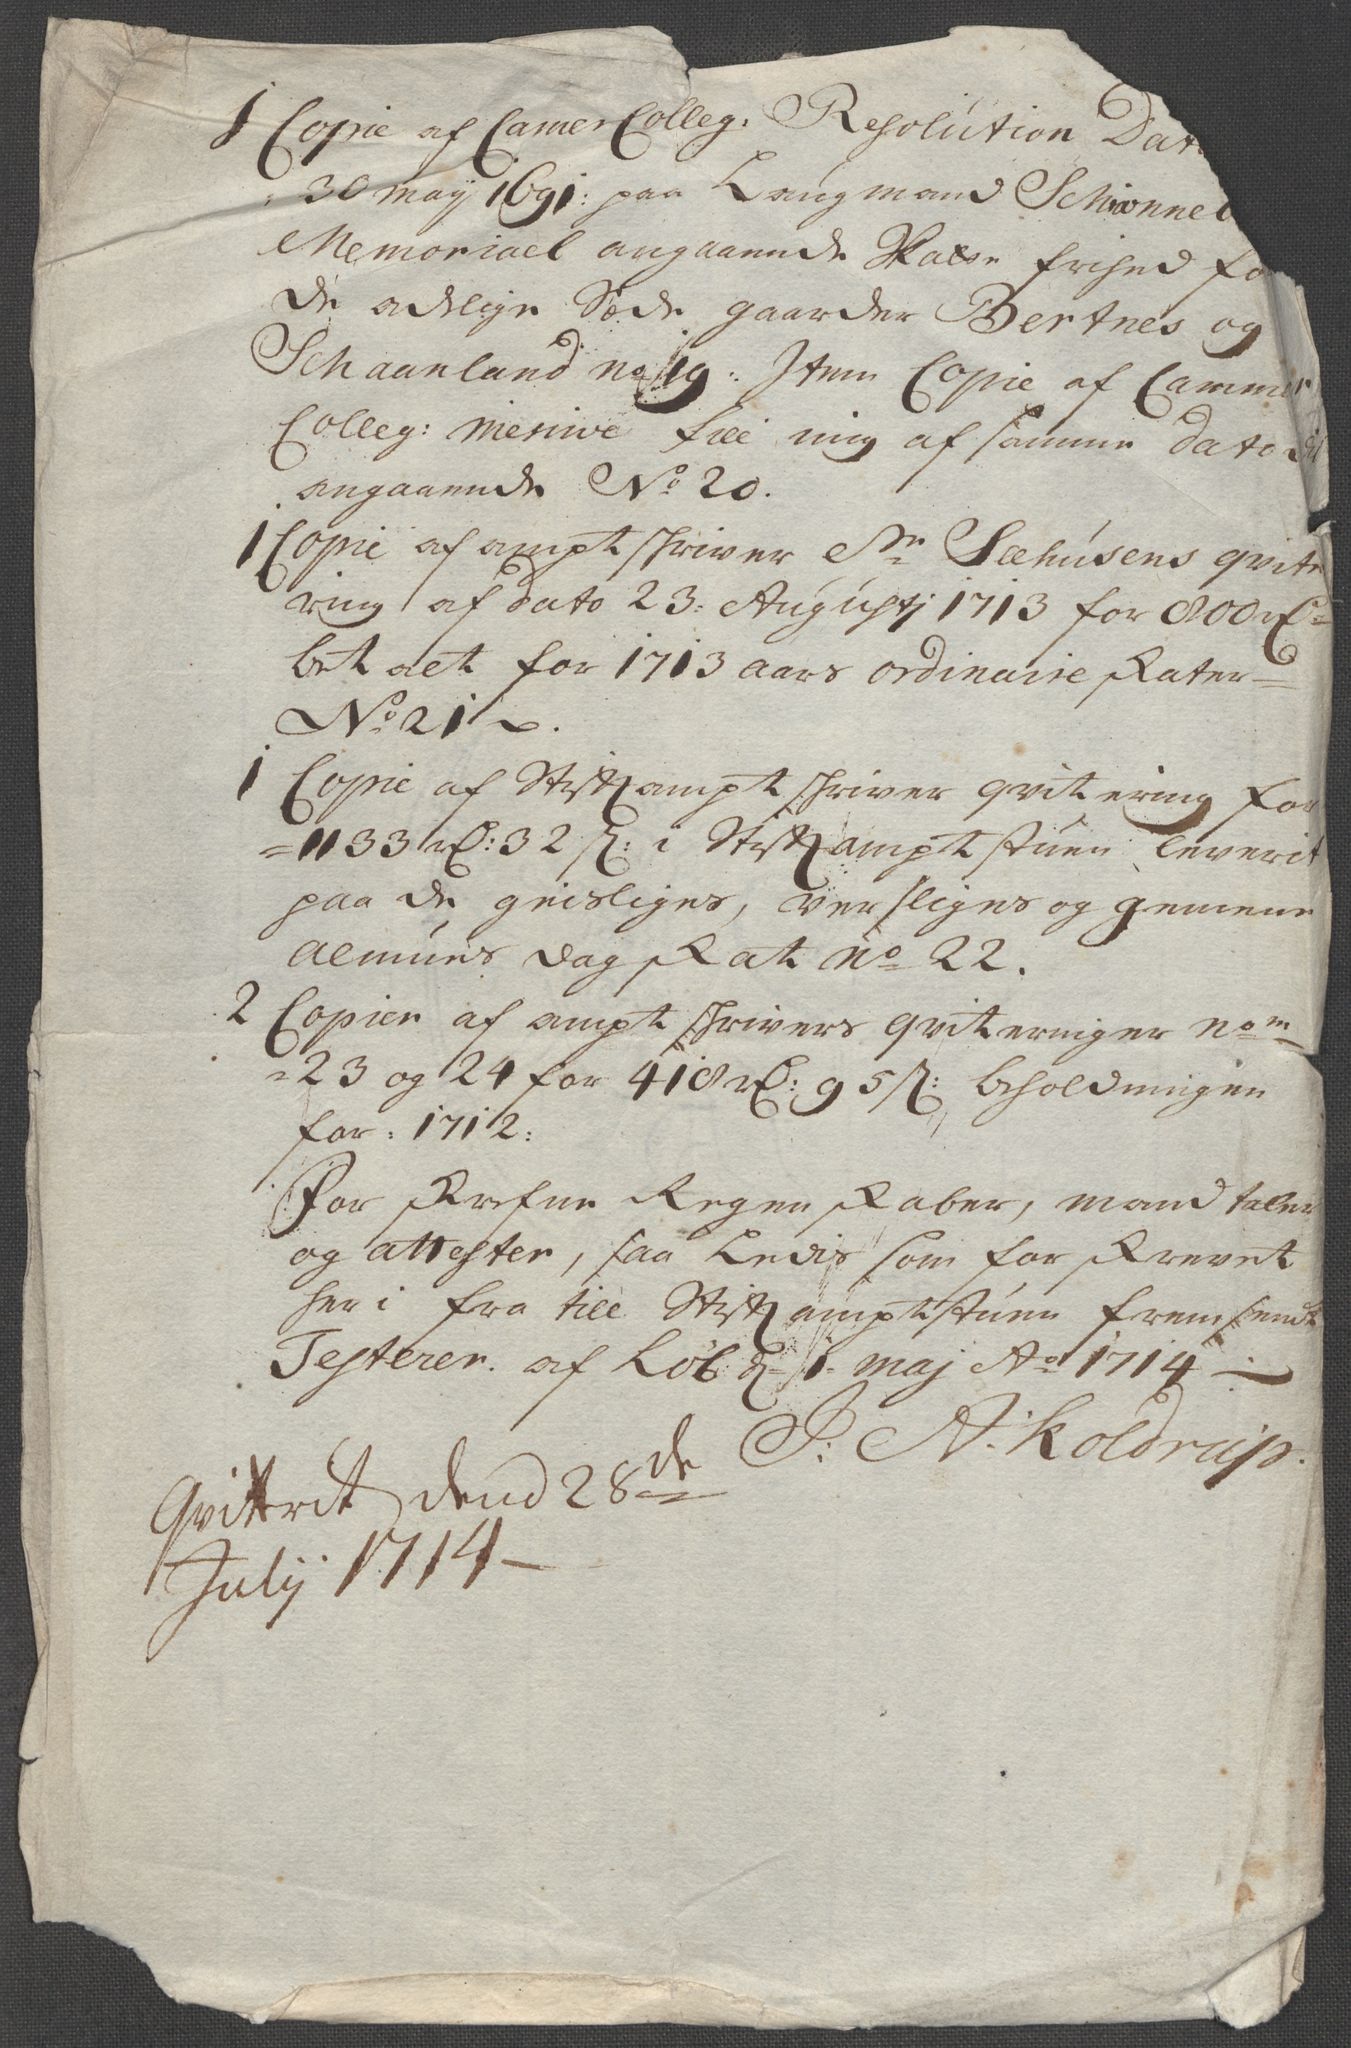 1 Copie af Camer Colleg: Resolution Dat
30 may 1691: paa Laugmand Schiønneb
Memoriael angaaende Skatte frihed fo
de adelige Sæde gaarder Bertnes og
Schaanland no 19. Item Copie af Cammer
Colleg: mesive till mig af samme dato
angaaende No 20.
1 Copie af ampt schriver Sr Seehusens qvite
ring af dato 23: Augustj 1713 for 800 rd
bet aelt for 1713 aars ordinaire skater
No 21
1 Copie af Stiftampt schriver qvitering for
1133 rd: 32 s: i Stiftamptstuen leverit
paa de geisliges, verdsliges og gemene
Almues dag skat no 22.
2 Copier af ampt schrivers qviteringer nom
23 og 24 for 418 rd: 95 s: beholdningen
for: 1712:
For skrefne Regenskaber, mand taller
og attester, saa Ledis som for skrevet
her i fra till Stiftamptstuen frem sendt
Testerer. af Løb d 1 maj Ao 1714
P: A: Koldrup.
Qvitterit dend 28de
Julij 1714